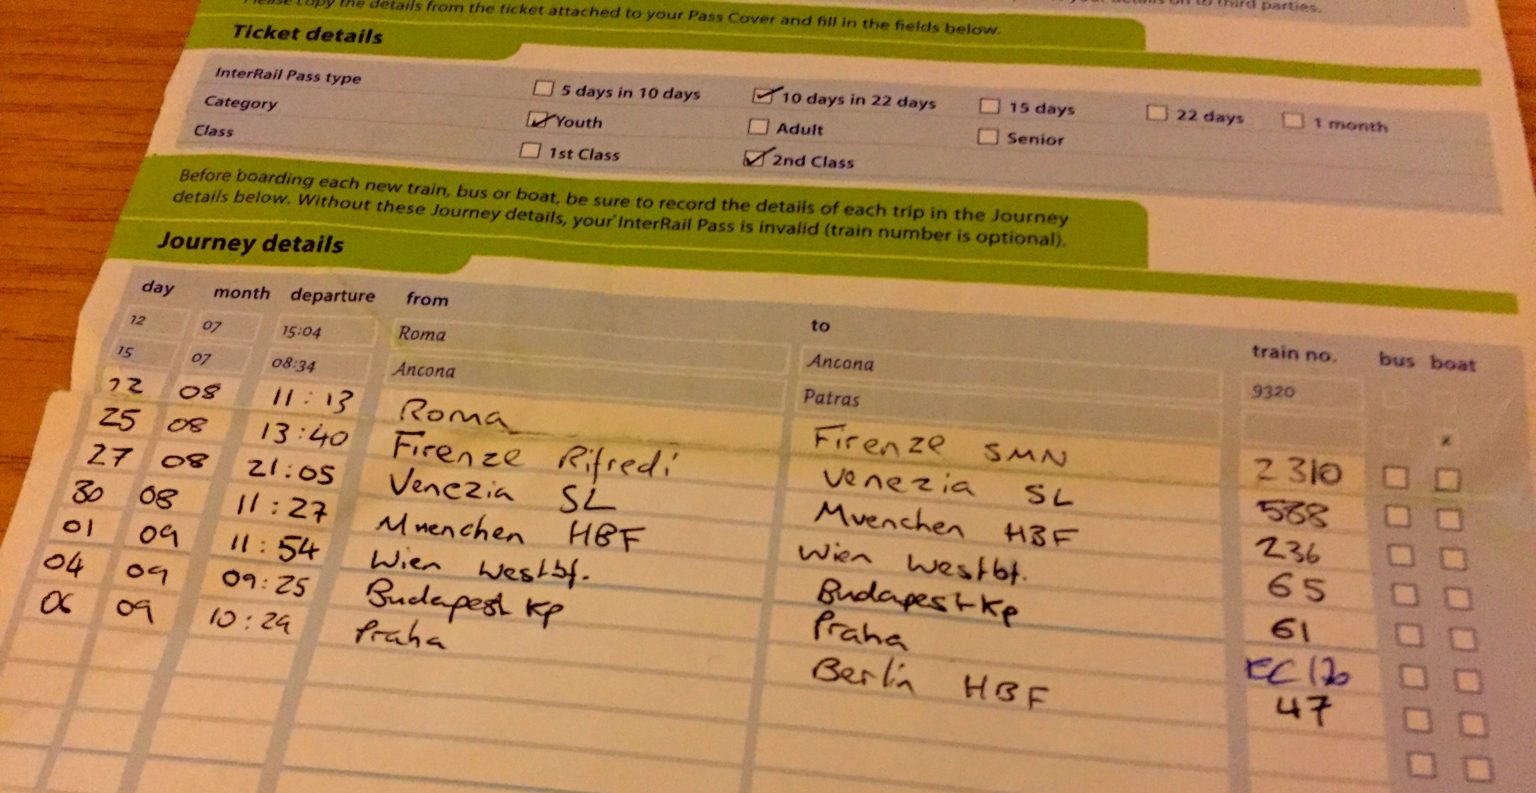 copy the details from the ticket attached to your Pass Cover and fill in the fields below.
third parties.
Ticket details
InterRail Pass type 5 days in 10 days 10 days in 22 days 15 days 22 days 1 month
Category Youth Adult Senior
Class 1st Class 2nd Class
Before boarding each new train, bus or boat, be sure to record the details of each trip in the Journey
details below. Without these Journey details, your InterRail Pass is invalid (train number is optional).
Journey details
day month departure from to train no. bus boat
12 07 15:04 Roma Ancona 9320
15 07 08:34 Ancona Patras x
22 08 11:13 Roma Firenze SMN 2310
25 08 13:40 Firenze Rifredi Venezia SL 588
27 08 21:05 Venezia SL Muenchen HBF 236
30 08 11:27 Muenchen HBF Wien Westbf. 65
01 09 11:54 Wien Westbf. Budapest Kp 61
04 09 09:25 Budapest Kp Praha EC
06 09 10:29 Praha Berlin HBF 47